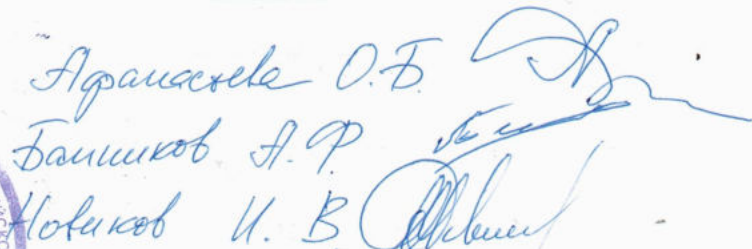 Афанасьева О.Б.
Банников А.Ф.
Новиков И.В